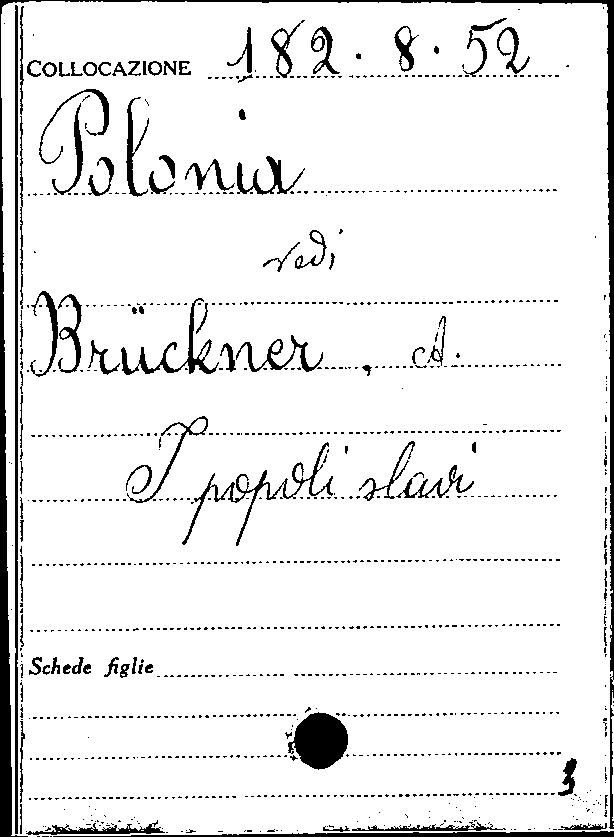 COLLOCAZIONE 182.8.52
Polonia
vedi
Brückner, A.
I popoli slavi
Schede figlie
3